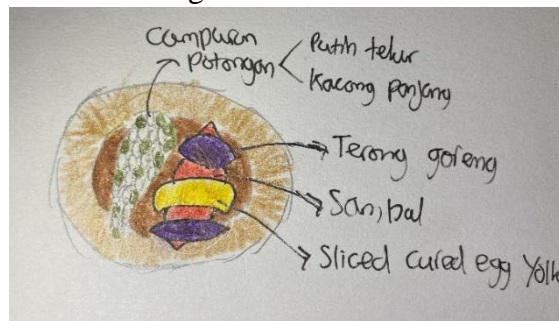 Campuran
potongan
Putih telur
Kacang panjang
Terong goreng
Sambal
Sliced cured egg Yolk